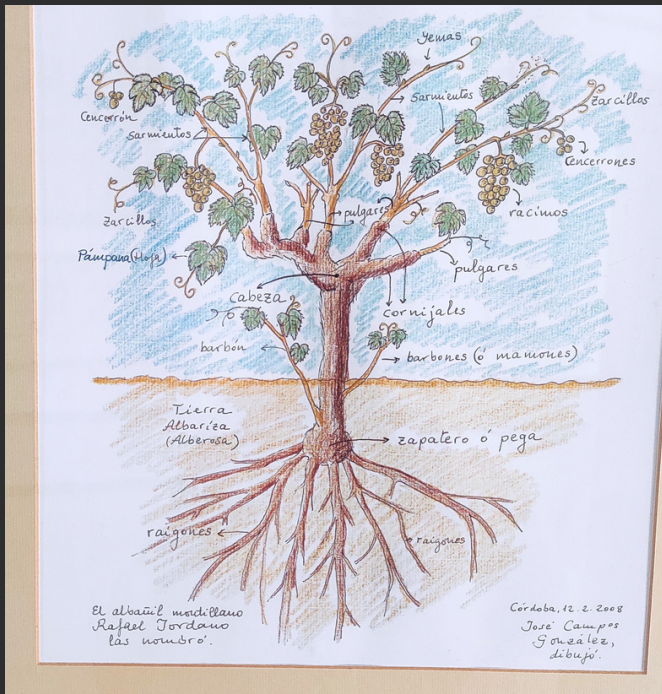 Yemas
Sarmientos
Zarcillos
Cencerrón
Sarmientos
Cencerrones
racimos
Zarcillos
pulgares
Pámpana (Hoja)
pulgares
cabeza
cornijales
barbón
barbones (ó mamones)
Tierra
Albariza
(Alberosa)
zapatero ó pega
raigones
raigones
El albañil mordillano
Rafael Jordano
las nombró.
Córdoba, 12.2.2008
José Campos
González,
dibujó.